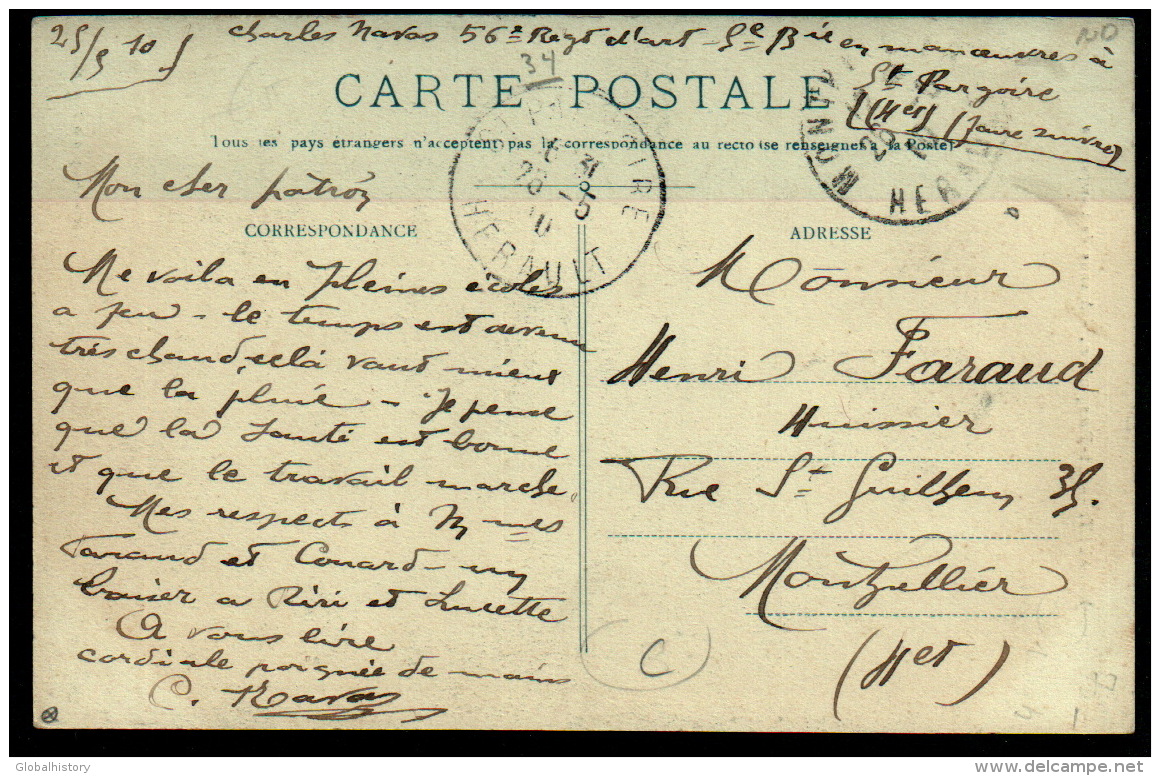 25/5 10
Charles Navas 56e Regt d'art - 5e Bie en manœuvres à
St Pargoire
(Het) (faire suivre)
34
CARTE POSTALE
Tous les pays étrangers n'acceptent pas la correspondance au recto (se renseigner à la Poste)
HERAULT
Mon cher patron
CORRESPONDANCE
Me voila en pleines ecoles
a feu - le temps est devenu
très chaud, cela vaut mieux
que la pluie - Je pense
que la santé est bonne
et que le travail marche.
Mes respects à Mmes
Faraud et Couard - un
baiser a Riri et Lucette
A vous lire
cordiale poignée de mains
C. Navas
ADRESSE
Monsieur
Henri Faraud
Huissier
Rue St Guilhem 35.
Montpellier
(Het)
C
Globalhistory